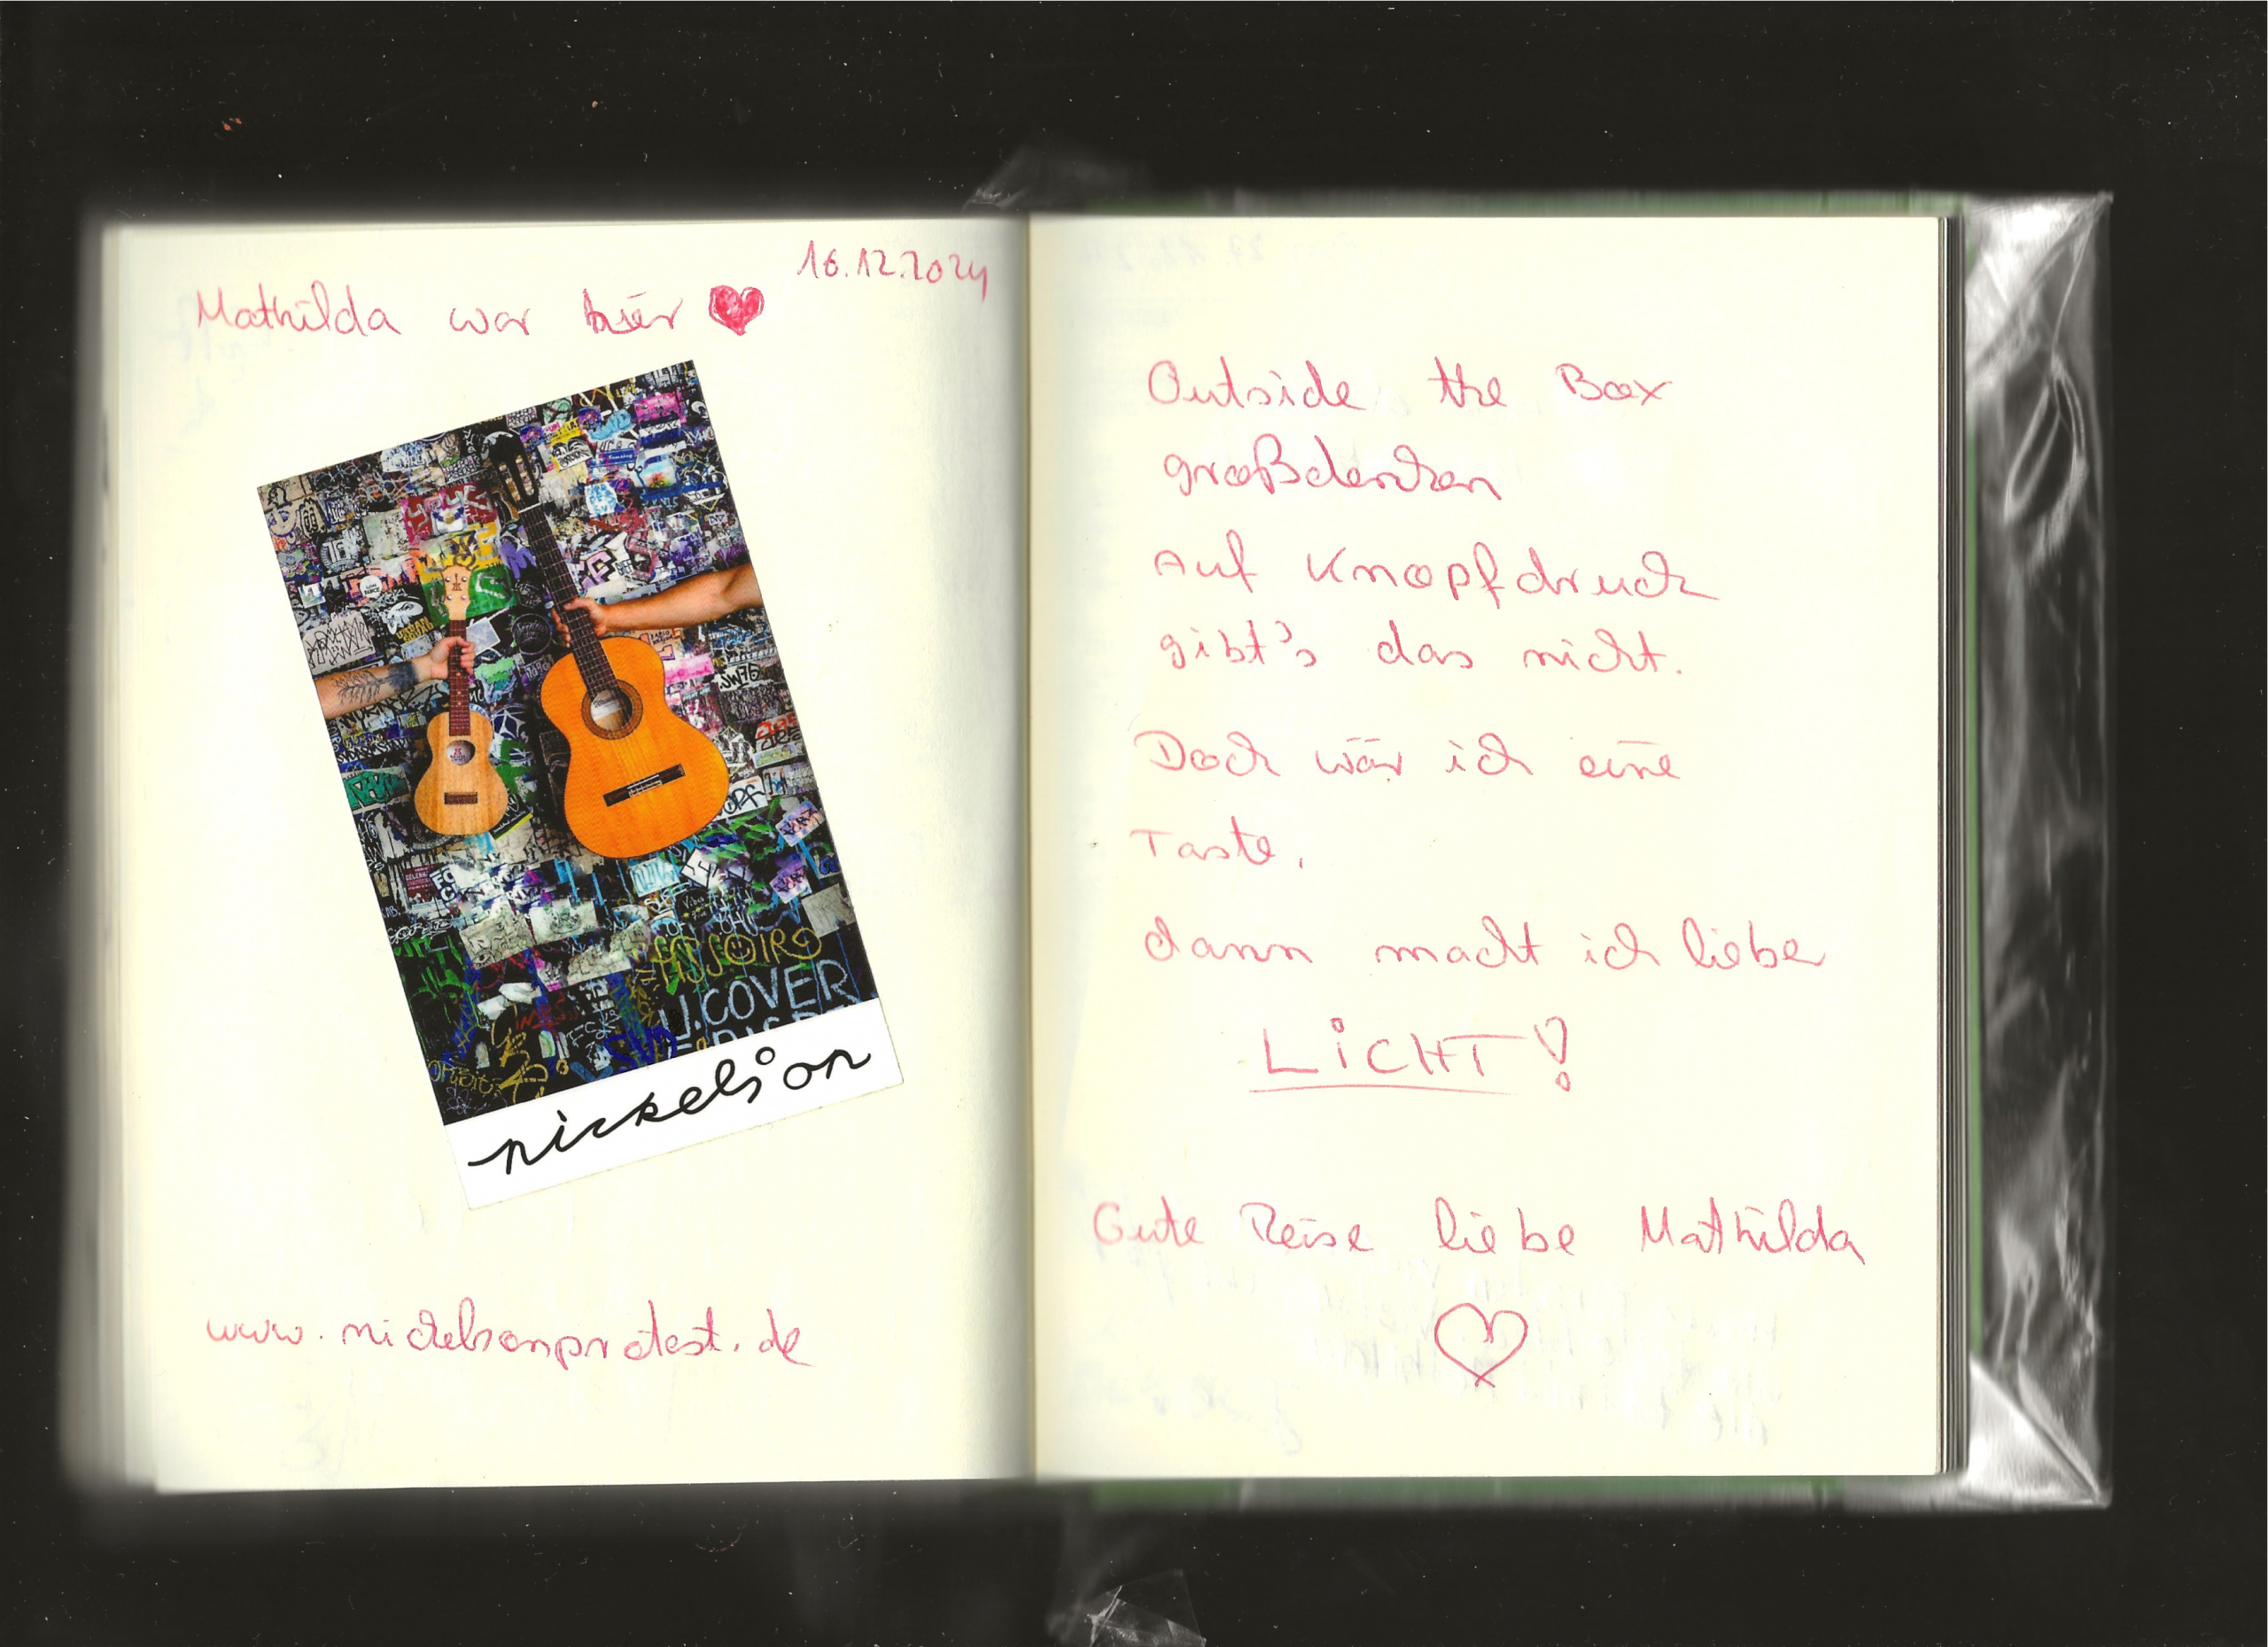 16.12.2024
Mathilda war hier ♥
U.COVER
nickelson
www.nickelsonprotest.de
Outside the Box
großdenken
Auf Knopfdruck
gibt's das nicht.
Doch wär ich eine
Taste,
dann macht ich lieber
LiCHT!
Gute Reise liebe Mathilda
♡